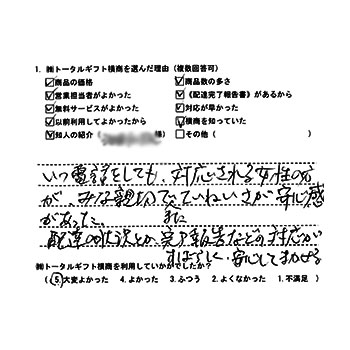 1. ㈱トータルギフト横商を選んだ理由（複数回答可）
☑商品の価格 ☑商品数の多さ
☑営業担当者がよかった ☑《配達完了報告書》があるから
☑無料サービスがよかった ☑対応が早かった
☑以前利用してよかったから ☑横商を知っていた
☑知人の紹介（ 様） □その他（ ）
いつ電話をしても、対応される女性の方
が、みな親切でていねいさが安心感
があった。また
配達の状況とか、完了報告などの対応が
すばらしく、安心してまかせる
㈱トータルギフト横商を利用していかがでしたか？
（ 5.大変よかった 4.よかった 3.ふつう 2.よくなかった 1.不満足 ）